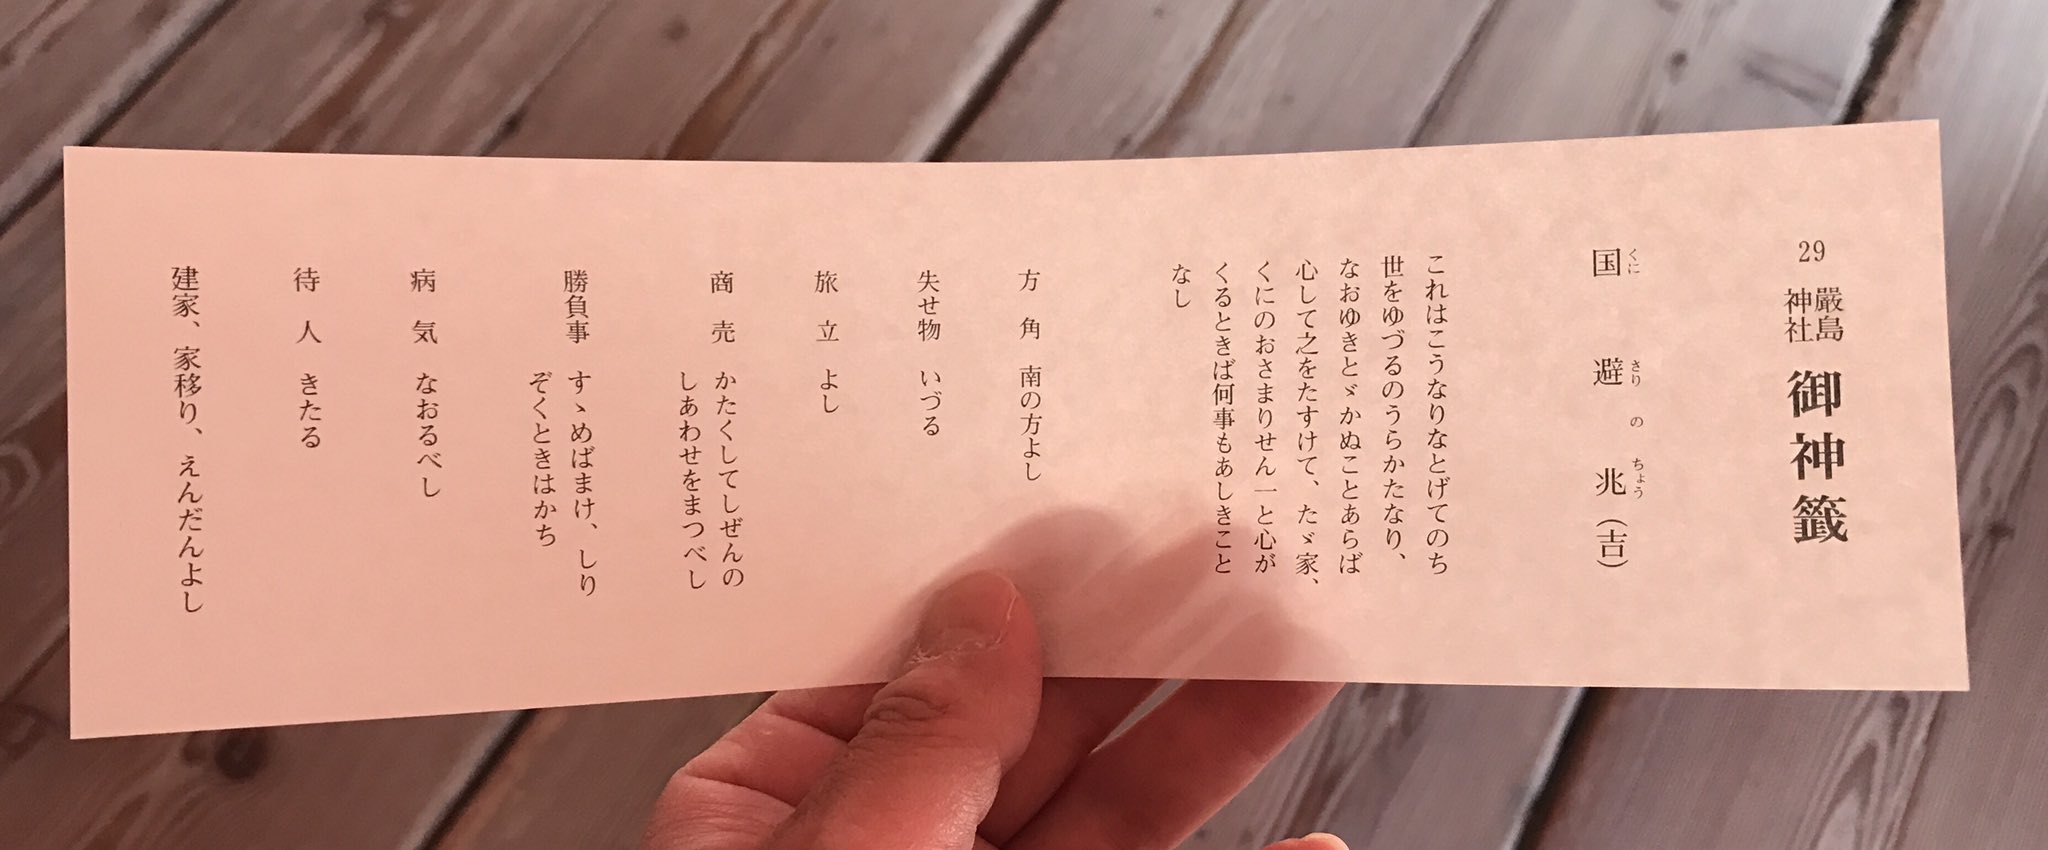 29 厳島神社 御神籤
国避の兆(吉)
くに さり の ちょう
これはこうなりなとげてのち
世をゆづるのうらかたなり、
なおゆきとゞかぬことあらば
心して之をたすけて、たゞ家、
くにのおさまりせん一と心が
くるときば何事もあしきこと
なし
方角 南の方よし
失せ物 いづる
旅立 よし
商売 かたくしてしぜんの
しあわせをまつべし
勝負事 すゝめばまけ、しり
ぞくときはかち
病気 なおるべし
待人 きたる
建家、家移り、えんだんよし